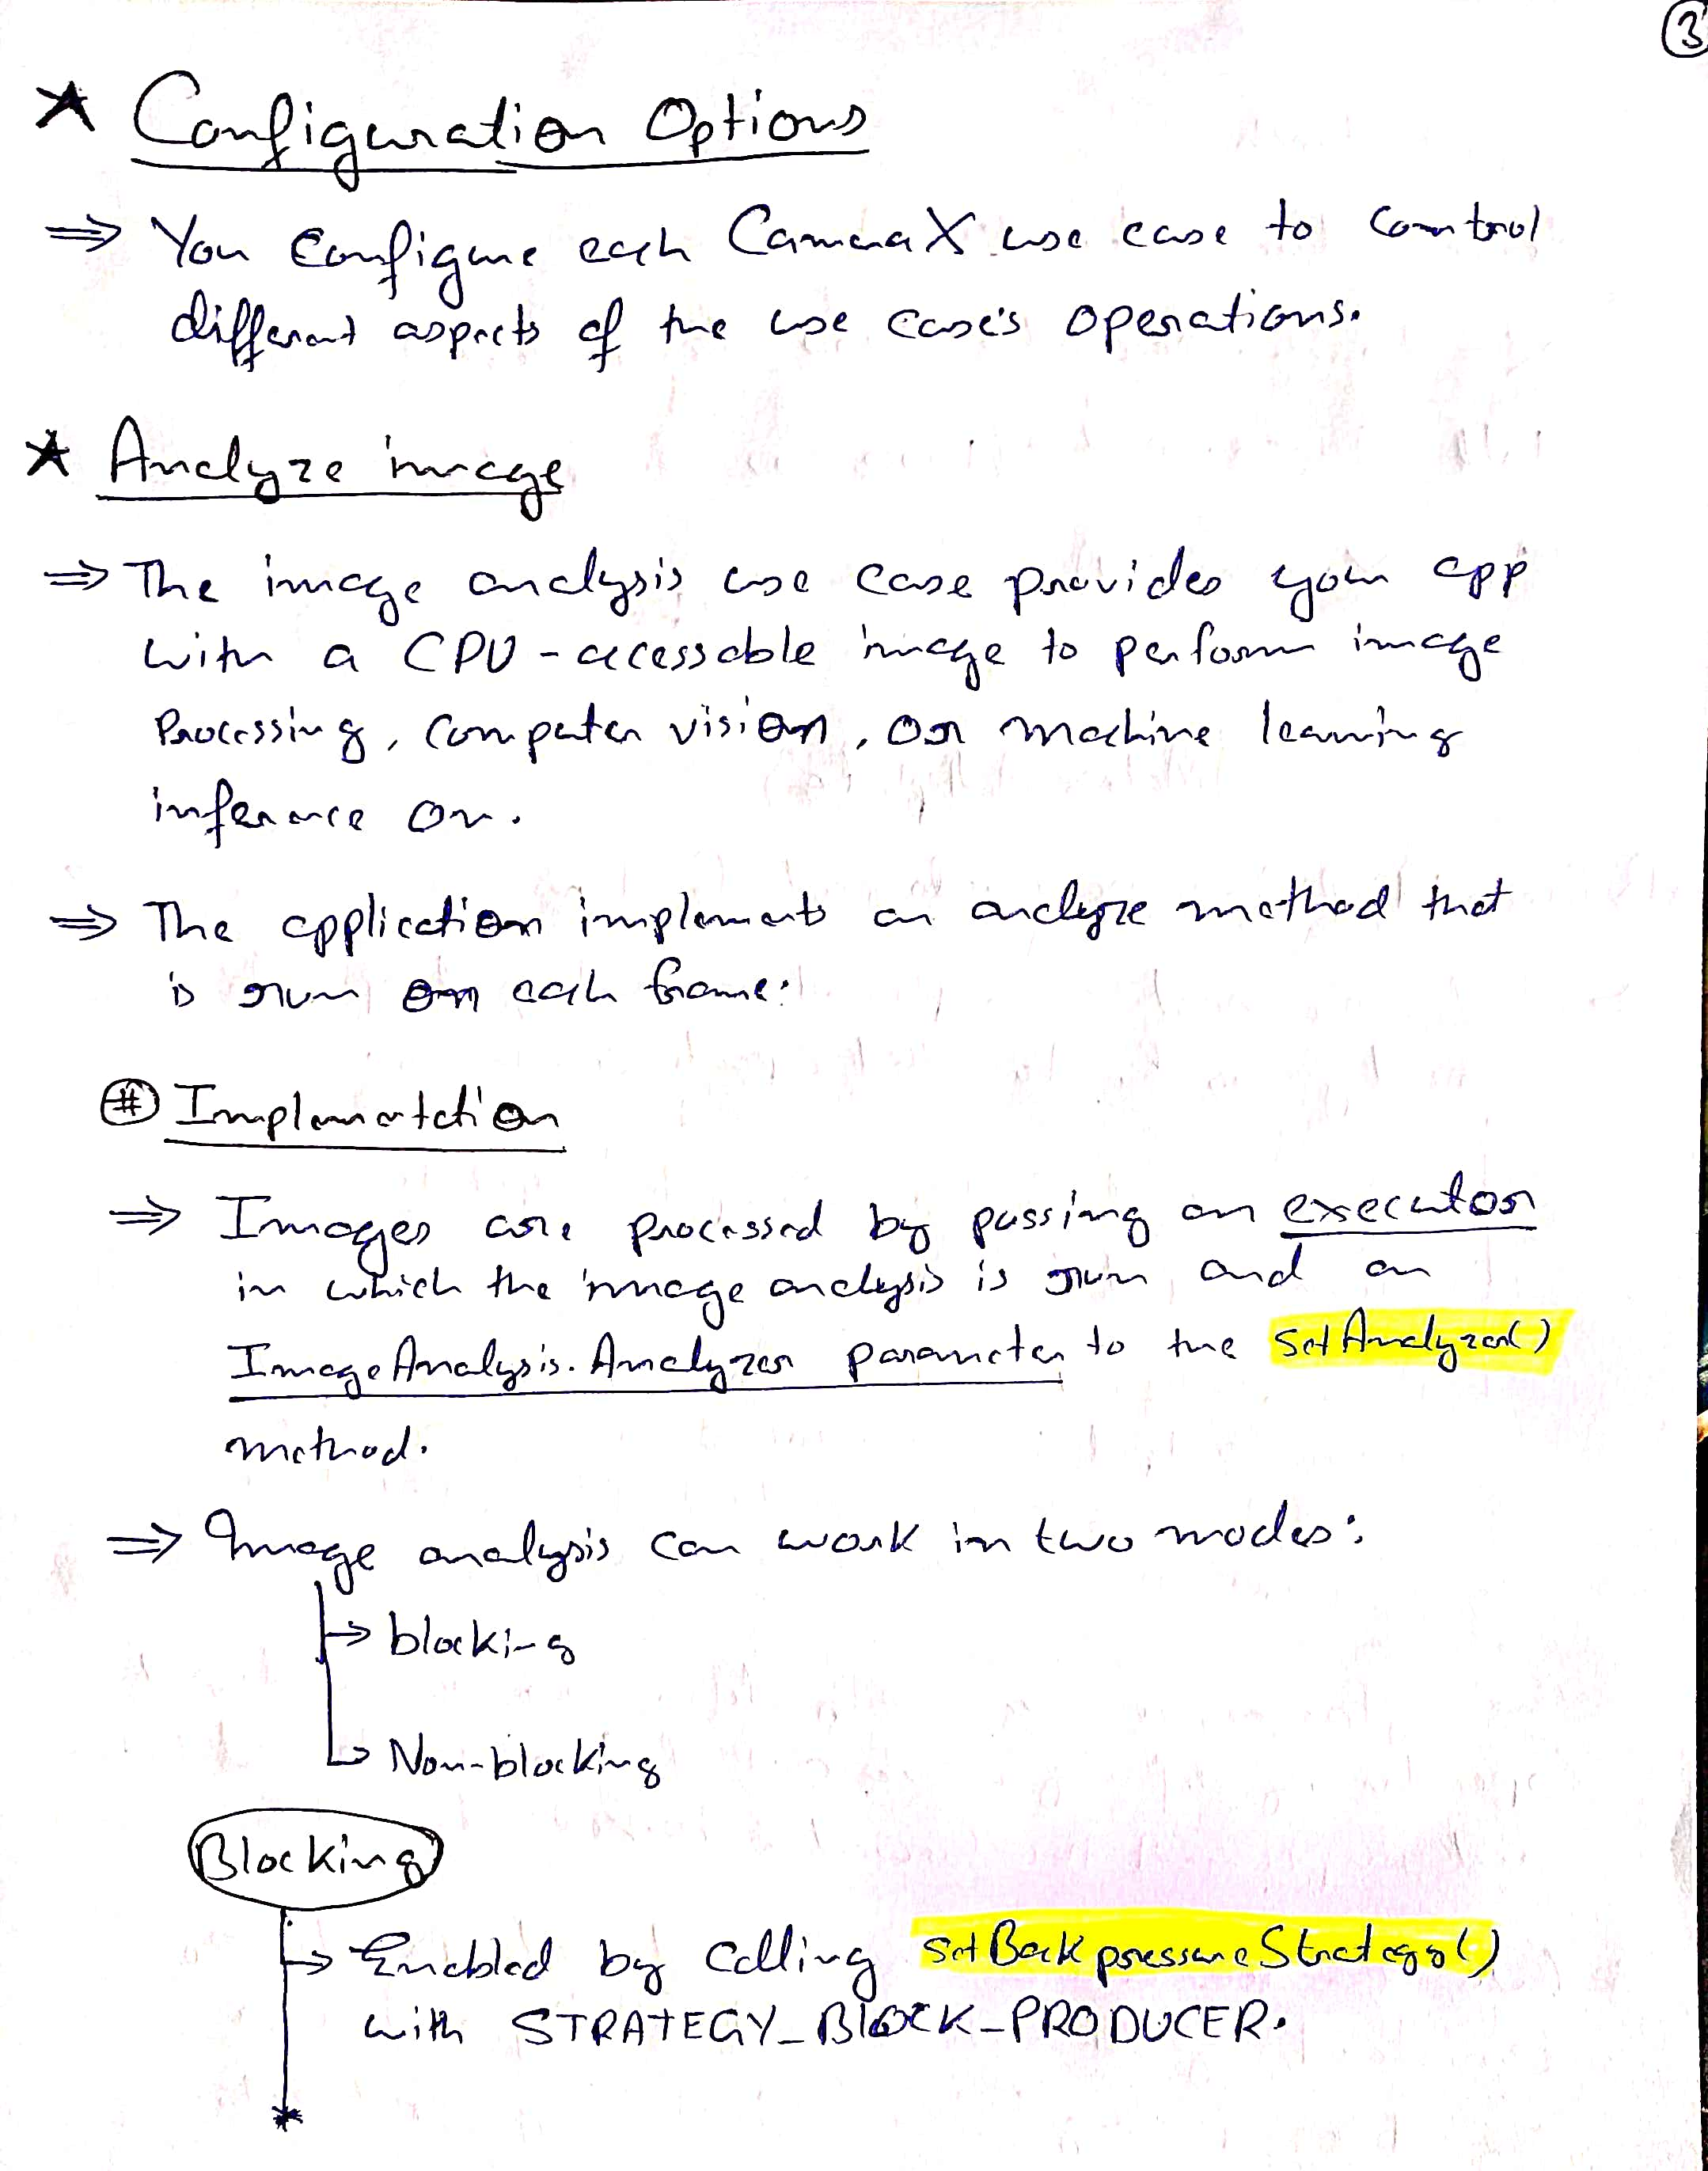 3
★ Configuration Options
⇒ You Configure each CameraX use case to control
different aspects of the use case's operations.
★ Analyze image
⇒ The image analysis use case provides your app
with a CPU-accessable image to perform image
Processing, Computer vision, or machine learning
inference on.
⇒ The application implements an analyze method that
is run on each frame.
# Implementation
⇒ Images are processed by passing an executor
in which the image analysis is run and an
ImageAnalysis.Analyzer parameter to the setAnalyzer()
method.
⇒ Image analysis can work in two modes:
→ blocking
→ Non-blocking
Blocking
→ Enabled by Calling setBackpressureStrategy()
with STRATEGY_BLOCK_PRODUCER.